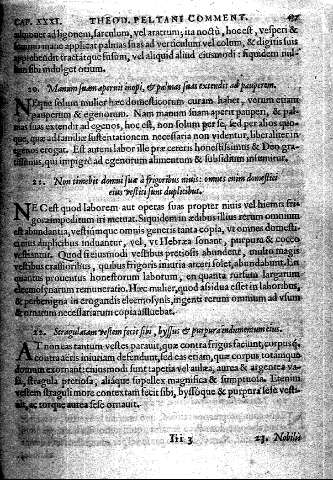 CAP. XXXI. THEOD. PELTANI COMMENT.
ad ligonem, sarculum, vel aratrum; ita noctu, hoc est, vesperi &
mane applicat palmas suas ad verticulum vel colum, & digitis suis
apprehendit tractatque fusum, vel aliquid aliud eiusmodi: siquidem nul-
sibi indulget otium.
20. Manum suam aperuit inopi, & palmas suas extendit ad pauperem.
NEque solum mulier hæc domesticorum curam habet, verum etiam
pauperum & egenorum. Nam manum suam aperit pauperi, & pal-
mas suas extendit ad egenos, hoc est, non solum per se, sed per alios quo-
que, quæ ad familiæ sustentationem necessaria non videntur, liberaliter in
egenos erogat. Est autem labor ille præ ceteris honestissimus & Deo gra-
tissimus, qui impigrè ad egenorum alimentum & subsidium insumitur.
21. Non timebit domui suæ à frigoribus niuis: omnes enim domestici
eius vestiti sunt duplicibus.
NEC est quod laborem aut operas suas propter niuis vel hiemis fri-
goris impolitum iri metuat. Siquidem in ædibus illius rerum omnium
est abundantia, vestiumque omnis generis tanta copia, vt omnes domesti-
ci eius duplicibus induantur, vel, vt Hebræa sonant, purpura & cocco
vestiantur. Quod si eiusmodi vestibus pretiosis abundent, multo magis
vestibus crassioribus, quibus frigoris iniuria arceri solet, abundabunt. En
quantus prouentus honestorum laborum, en quanta rursum largarum
eleemosynarum remuneratio. Hæc mulier, quod assidua esset in laboribus,
& perbenigna in erogandis eleemosynis, ingenti rerum omnium ad vsum
& ornatum necessariarum copia affluebat.
22. Stragulatam vestem fecit sibi, byssus & purpura indumentum eius.
AT non eas tantum vestes parauit, quæ contra frigus faciunt, corpusq́;
contra aeris iniuriam defendunt, sed eas etiam, quæ corpus totamque
domum exornant: cuiusmodi sunt tapetia vel aulæa, aurea & argentea va-
sa, stragula pretiosa, aliáque supellex magnifica & sumptuosa. Etenim
vestem straguli more contextam fecit sibi, byssoque & purpura sese vesti-
ac torque aurea sese ornauit.
Iii 3
23. Nobilis